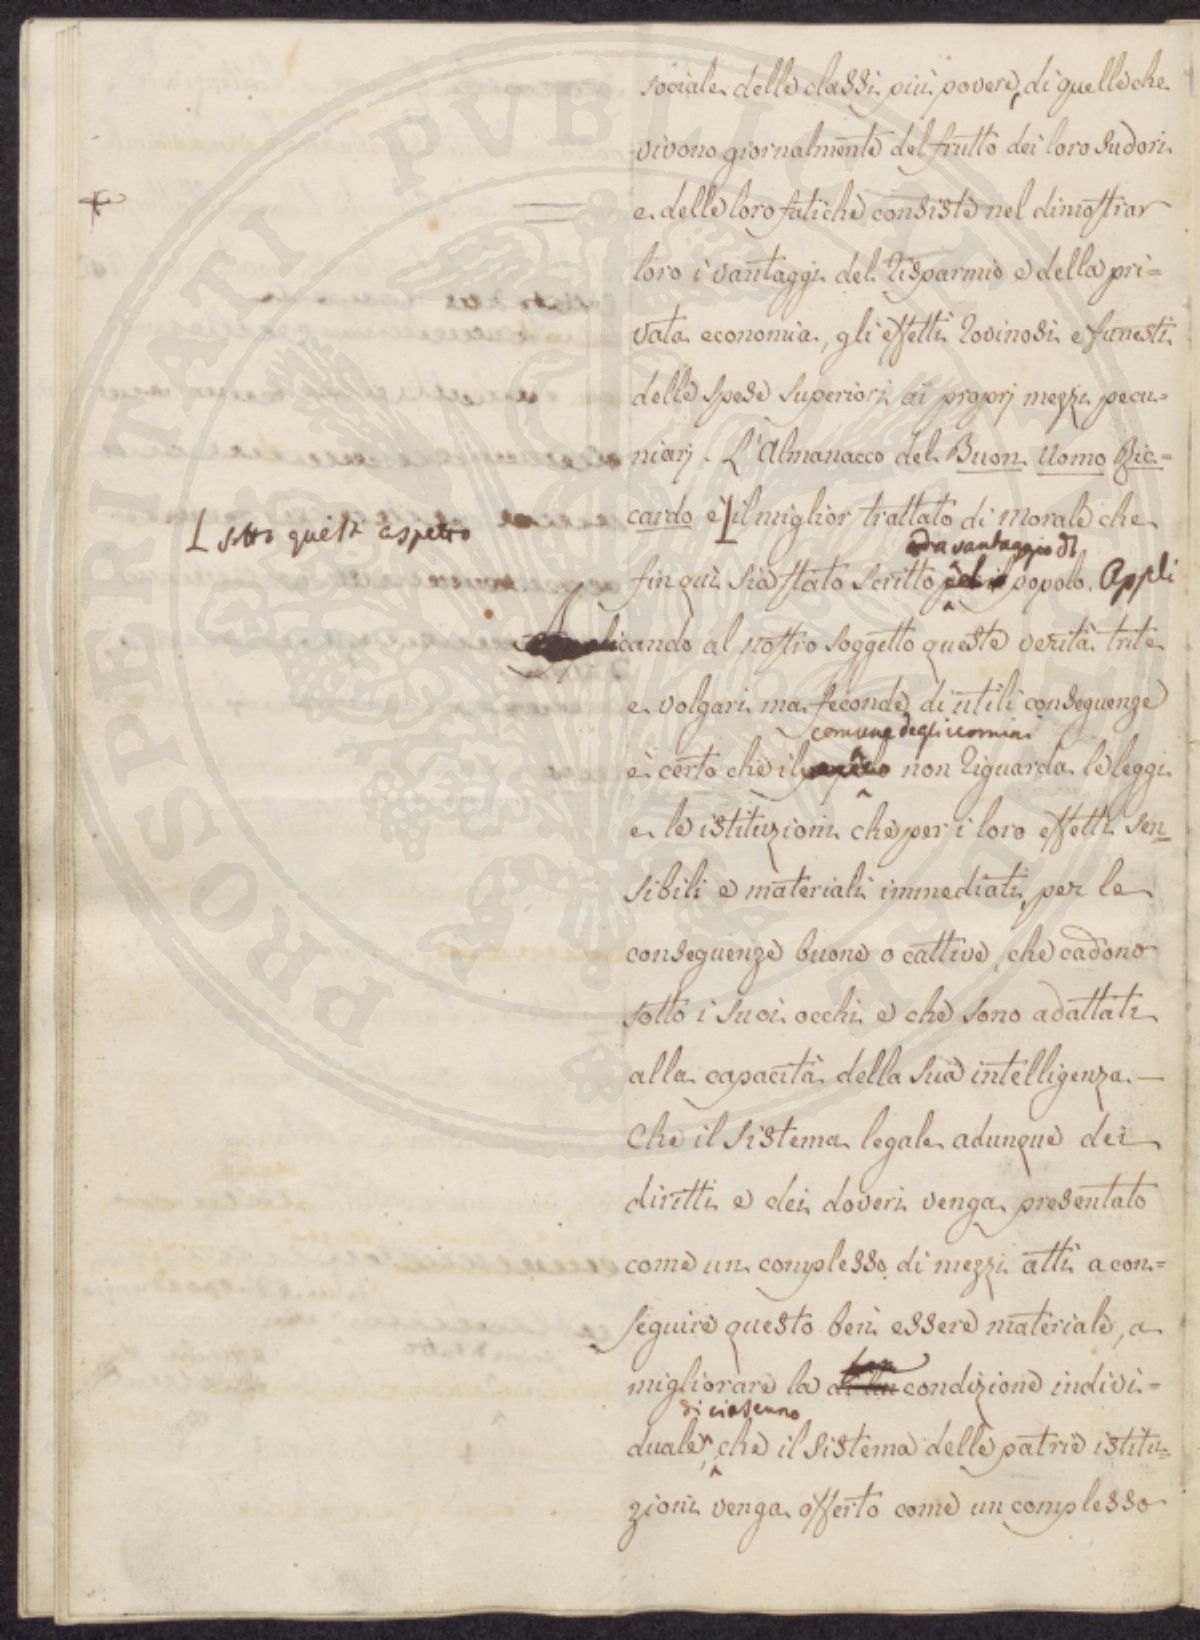 sociale delle classi più povere, di quelle che
vivono giornalmente del frutto dei loro sudori
e delle loro fatiche consiste nel dimostrar
loro i vantaggi del risparmio e della pri=
vata economia, gli effetti rovinosi e funesti
delle spese superiori ai proprj mezzi pecu=
niarj. L'Almanacco del Buon Uomo Ric=
cardo è il miglior trattato di morale che
sotto questo aspetto
a vantaggio del
fin qui sia stato scritto pel popolo. Appli
cando al nostro soggetto queste verità trite
e volgari ma feconde di utili conseguenze
comune degli uomini
è certo che il non riguarda le leggi
e le istituzioni che per i loro effetti sen=
sibili e materiali immediati, per le
conseguenze buone o cattive, che cadono
sotto i suoi occhi e che sono adattate
alla capacità della sua intelligenza. —
Che il sistema legale adunque dei
diritti e dei doveri venga presentato
come un complesso di mezzi atti a con=
seguire questo ben essere materiale, a
migliorare la condizione indivi=
di ciascuno
duale, che il sistema delle patrie istitu=
zioni venga offerto come un complesso
PROSPERITATI PVBLICAE